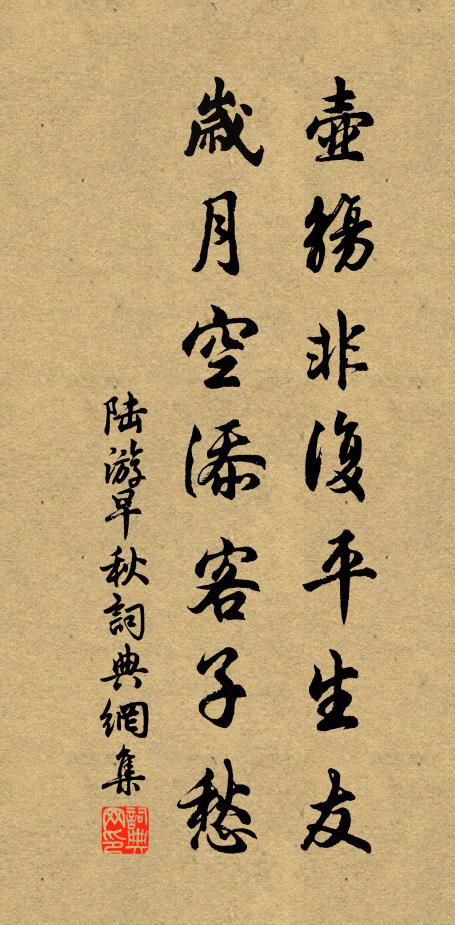 壺觴非復平生友
歲月空添客子愁
陆游早秋詞典網集
詞典网印